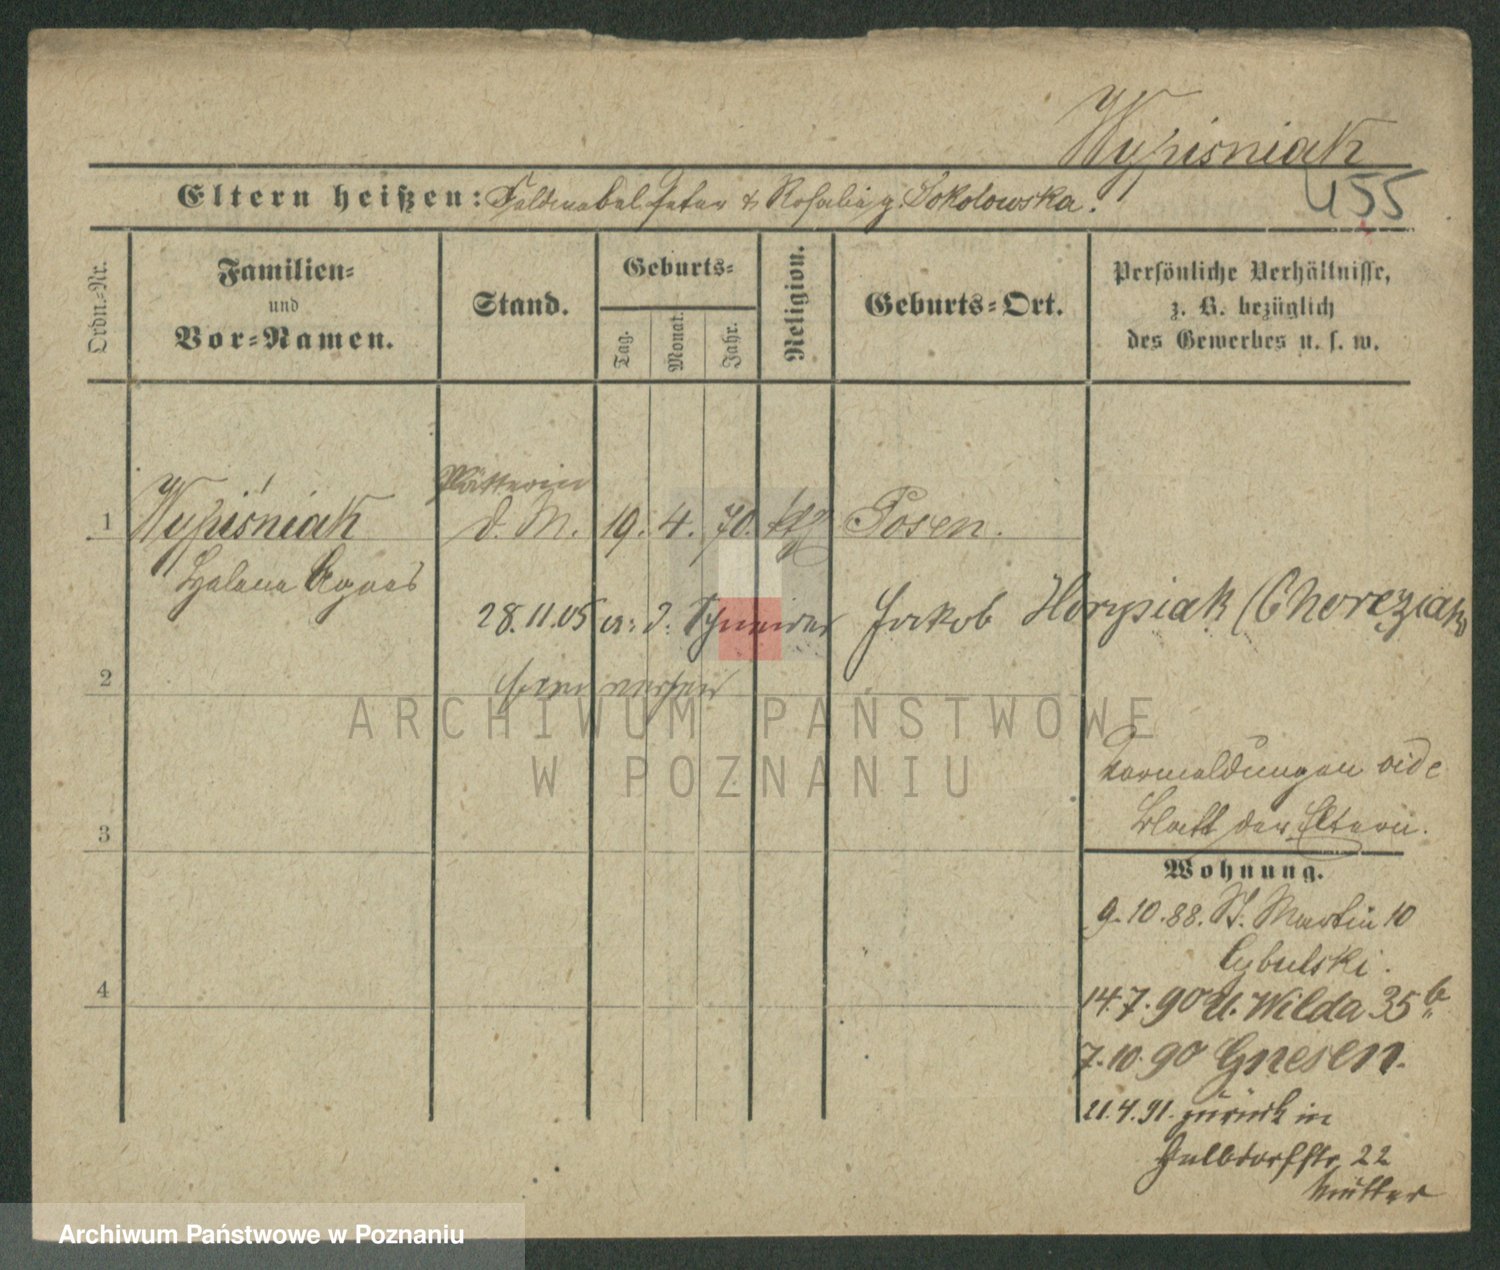 Wypisniak
Eltern heißen: Feldwebel Peter & Rosalie g. Sokolowska.
455
Ordn.-Nr.
Familien- und Vor-Namen.
Stand.
Geburts-
Tag. Monat. Jahr.
Religion.
Geburts-Ort.
Persönliche Verhältnisse, z. B. bezüglich des Gewerbes u. s. w.
Plätterin
1 Wypiśniak d. M. 19. 4. 70. kth Posen.
Helene Agnes
28.11.05 a: d. Schneider Jakob Horysiak (Choręziak)
2
3
4
Vormeldungen vide
Blatt der Eltern.
Wohnung.
9.10.88. St. Martin 10
Cybulski.
14.7.90 U. Wilda 35b
7.10.90 Gnesen.
21.4.91. zurück in
Halbdorfstr. 22
Mutter
ARCHIWUM PAŃSTWOWE
W POZNANIU
Archiwum Państwowe w Poznaniu